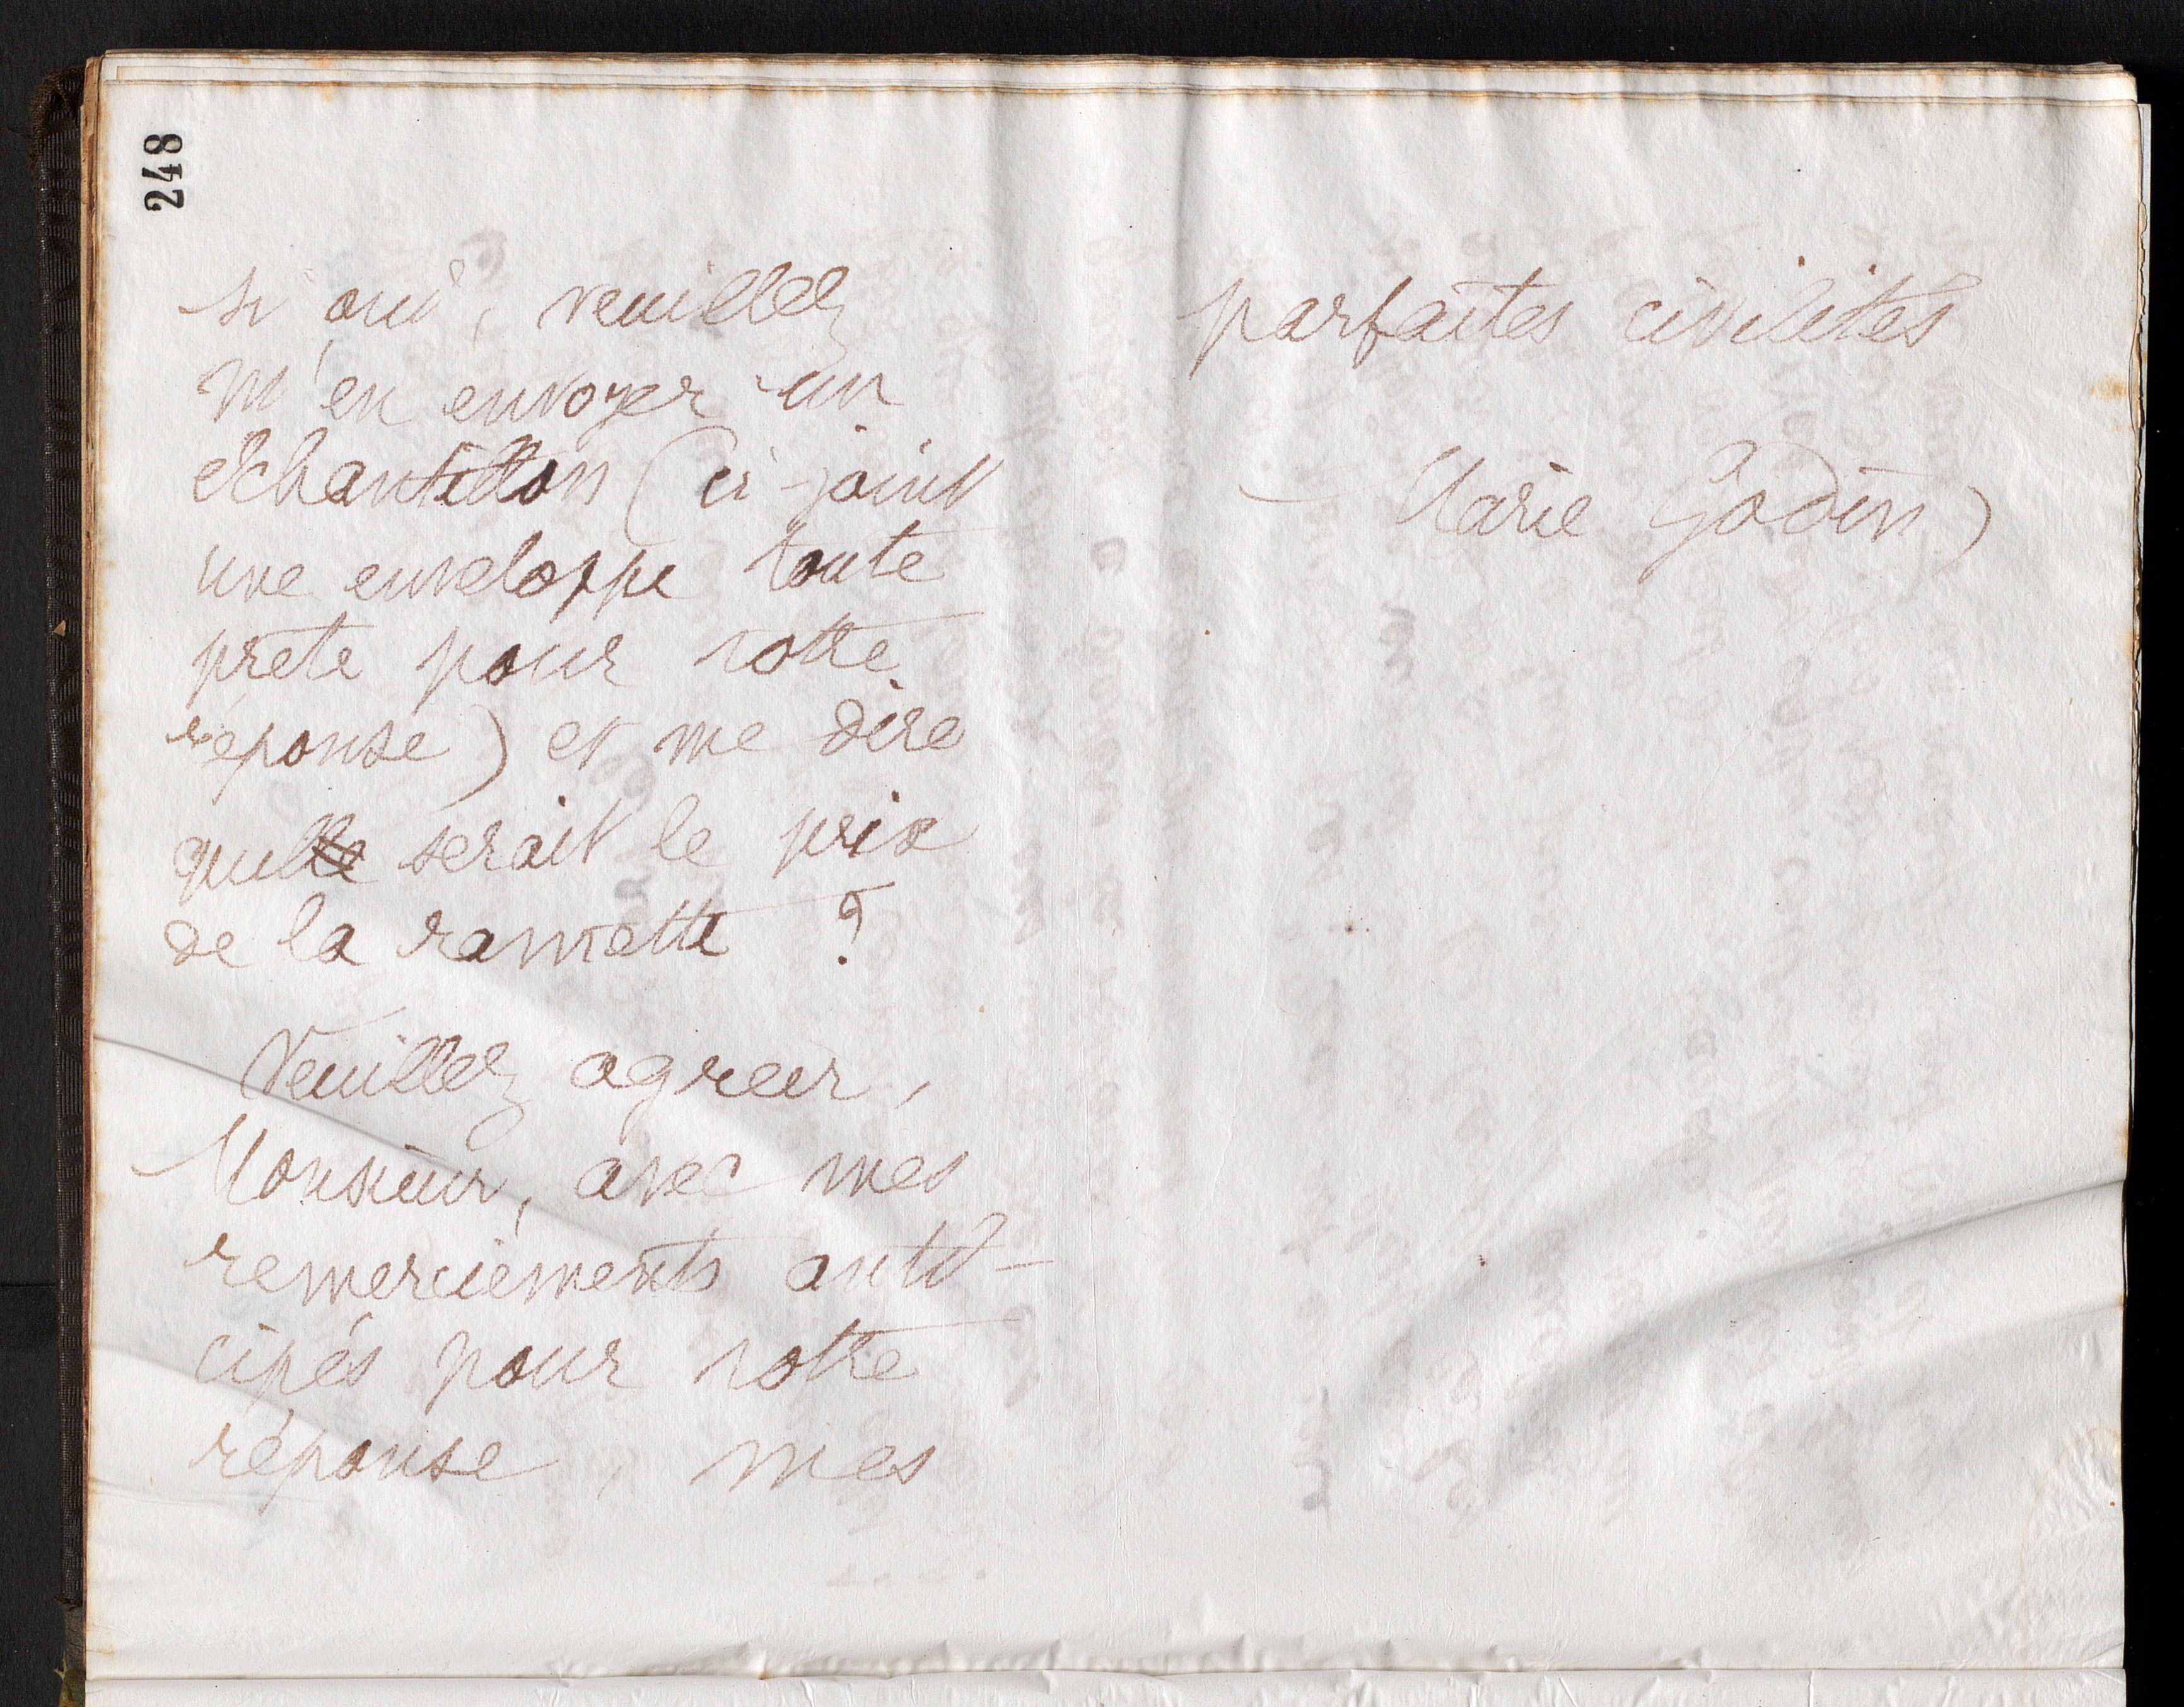 248
si oui, veuillez
m'en envoyer un
échantillon (ci-joint
une enveloppe toute
prête pour votre
réponse) et me dire
quelle serait le prix
de la ramette ?
Veuillez agréer,
Monsieur, avec mes
remerciements anti-
cipés pour votre
réponse, mes
parfaites civilités
Marie Godin